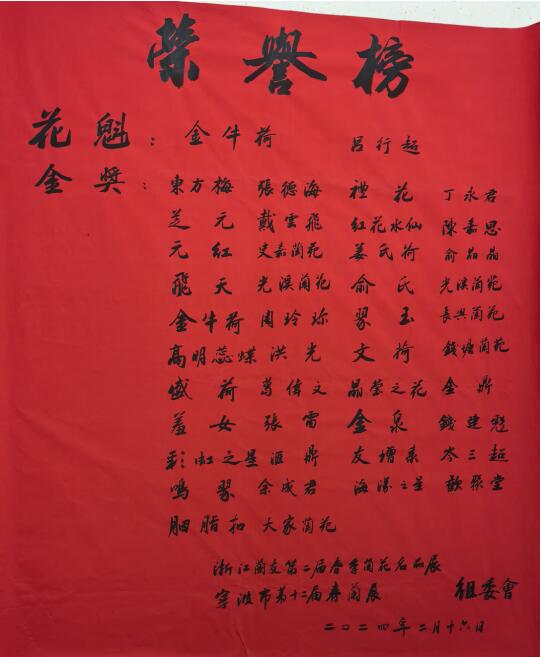 榮譽榜
花魁：金牛荷 呂行超
金獎：東方梅 張德海 禮花 丁永君
芝元 戴雲飛 紅花水仙 陳嘉恩
元紅 史嘉蘭苑 姜氏荷 俞晶晶
飛天 光溪蘭苑 俞氏 光溪蘭苑
金牛荷 周玲珍 翠玉 長興蘭苑
高明蕊蝶 洪光 文荷 錢塘蘭苑
盛荷 葛偉文 晶瑩之花 金鼎
羞女 張雷 金泉 錢建
彩虹之星 滙鼎 友增素 岑三超
鳴翠 余成君 海漾之星 歡聚堂
胭脂扣 大家蘭苑
浙江蘭友第二屆春季蘭花名品展
寧波市第十二屆春蘭展 組委會
二〇二四年二月十六日